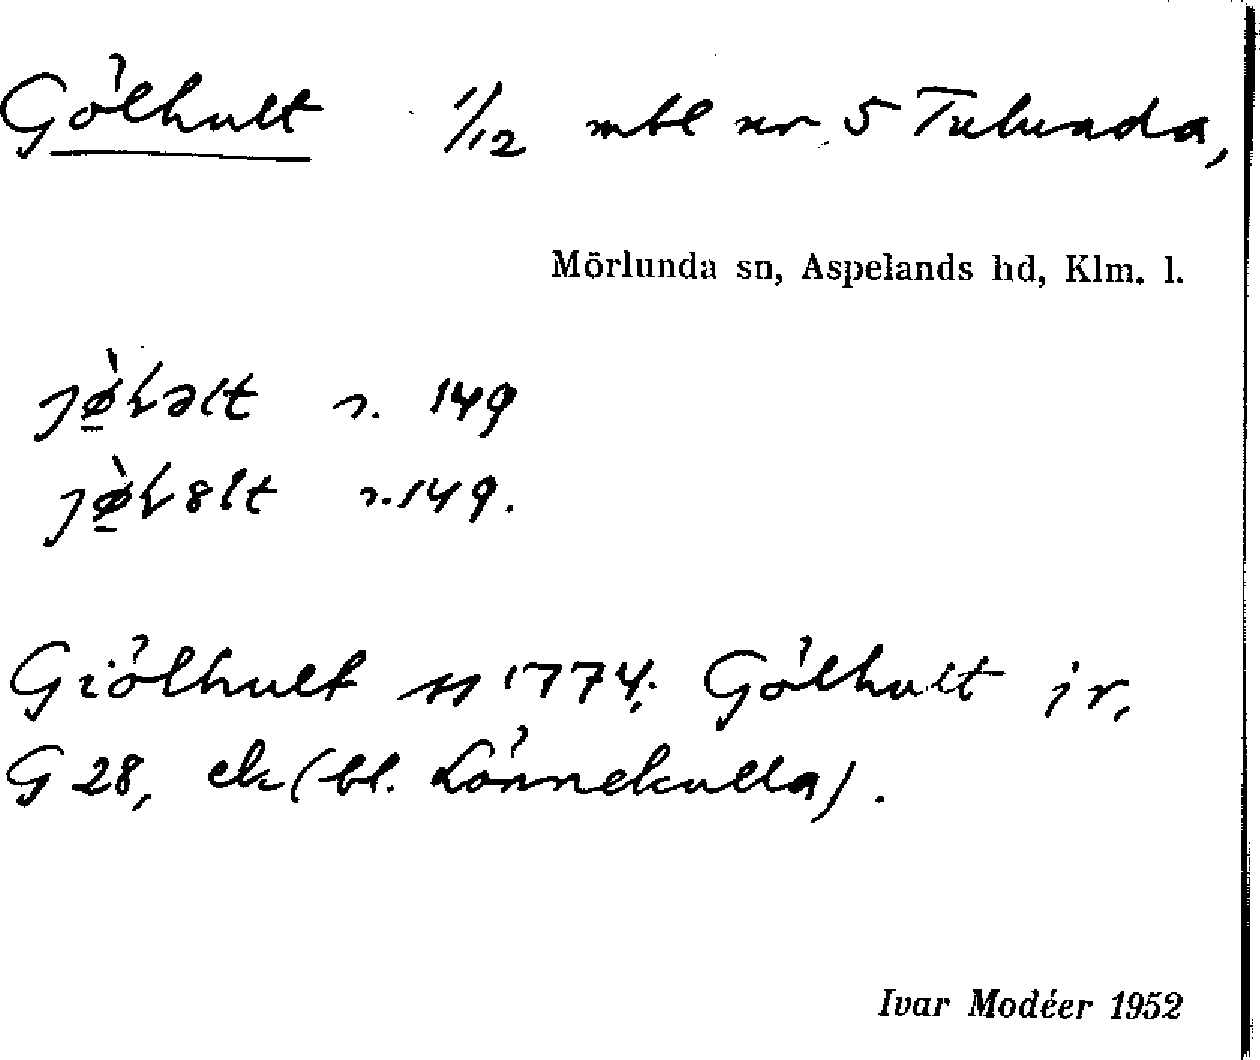 Gölhult 1/12 mbl nr 5 Tulunda,
Mörlunda sn, Aspelands hd, Klm. l.
r. 149
r. 149.
Giölhult 1774; Gölhult jr,
G 28, ek (bl. Lönnekulla).
Ivar Modéer 1952